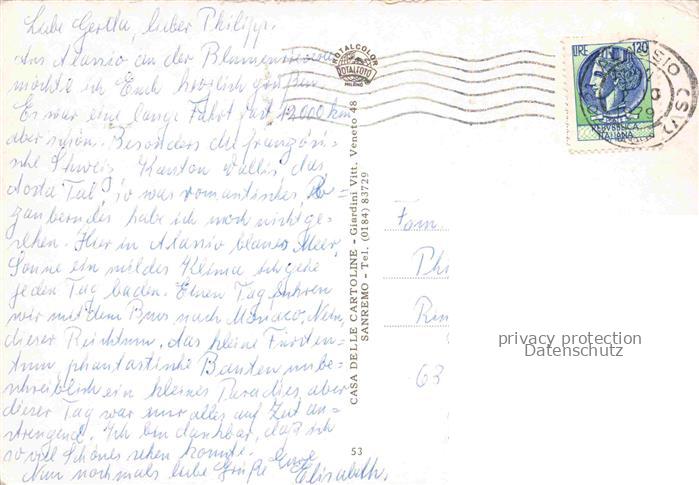 Liebe Gertha, lieber Philipp.
Aus Alassio an der Blumenriviera
möchte ich Euch herzlich grüßen.
Es war eine lange Fahrt fast 12000 km
aber schön. Besonders die französi=
sche Schweiz. Kanton Wallis, das
Aosta Tal, so was romantisches, Be=
zauberndes habe ich noch nicht ge=
sehen. Hier in Alassio blaues Meer,
Sonne ein mildes Klima ich gehe
jeden Tag baden. Einen Tag fuhren
wir mit dem Bus nach Monaco. Nein,
dieser Reichtum, das kleine Fürsten=
tum, phantastische Bauten unbe=
schreiblich ein kleines Paradies, aber
dieser Tag war nur alles auf Zeit an=
strengend. Ich bin dankbar, daß ich
so viel Schönes sehen konnte. Eure
Nun nochmals liebe Grüße Elisabeth.
CASA DELLE CARTOLINE - Giardini Vitt. Veneto 48
SANREMO - Tel. (0184) 83729
53
TOTALCOLOR
TOTALFOTO
MILANO
LIRE 120
REPUBBLICA
ITALIANA
SIO (SV)
Fam.
Phi
Rin
63
privacy protection
Datenschutz